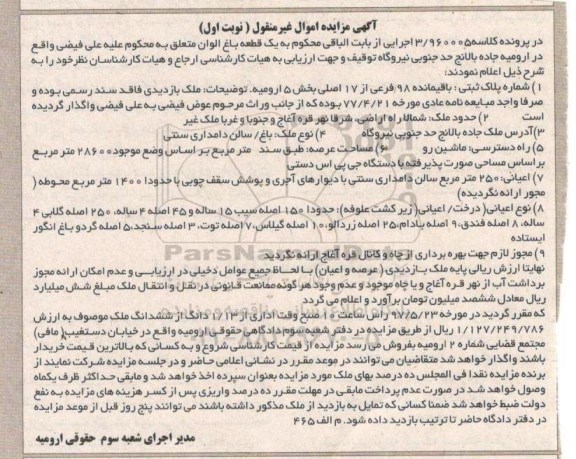 آگهی مزایده اموال غیرمنقول ( نوبت اول)
در پرونده کلاسه ۳/۹۶۰۰۰۵ اجرایی از بابت الباقی محکوم به یک قطعه باغ الوان متعلق به محکوم علیه علی فیضی واقع
در ارومیه جاده بالانج حد جنوبی نیروگاه توقیف و جهت ارزیابی به هیات کارشناسی ارجاع و هیات کارشناسان نظر خود را به
شرح ذیل اعلام نمودند:
۱) شماره پلاک ثبتی : باقیمانده ۹۸ فرعی از ۱۷ اصلی بخش ۵ ارومیه. توضیحات: ملک بازدیدی فاقد سند رسمی بوده و
صرفا واجد مبایعه نامه عادی مورخه ۷۷/۴/۲۱ بوده که از جانب وراث مرحوم عوض فیضی به علی فیضی واگذار گردیده
است ۲) حدود ملک: شمالا راه اراضی، شرقا نهر قره آغاج و جنوبا و غربا ملک غیر
۳) آدرس ملک جاده بالانج حد جنوبی نیروگاه ۴) نوع ملک: باغ / سالن دامداری سنتی
۵) راه دسترسی: ماشین رو ۶) مساحت عرصه: طبق سند متر مربع بر اساس وضع موجود ۲۸۶۰۰ متر مربع
بر اساس مساحی صورت پذیرفته با دستگاه جی پی اس دستی
۷) اعیانی: ۲۵۰ متر مربع سالن دامداری سنتی با دیوارهای آجری و پوشش سقف چوبی با حدودا ۱۴۰۰ متر مربع محوطه (
مجوز ارائه نگردیده)
۸) نوع اعیانی( درخت/ اعیانی( زیر کشت علوفه): حدودا ۱۵۰ اصله سیب ۱۵ ساله و ۴۵ اصله ۴ ساله، ۲۵۰ اصله گلابی ۴
ساله، ۸ اصله فندق، ۹ اصله بادام، ۲۵ اصله زردآلو، ۱۰ اصله گیلاس، ۷ اصله توت، ۳ اصله سنجد، ۵ اصله گردو باغ انگور
ایستاده
۹) مجوز لازم جهت بهره برداری از چاه و کانال قره آغاج ارائه نگردید
نهایتا ارزش ریالی پایه ملک بازدیدی ( عرصه و اعیان) با لحاظ جمیع عوامل دخیل در ارزیابی و عدم امکان ارائه مجوز
برداشت آب از نهر قره آغاج و یا چاه موجود و عدم وجود هر گونه ممانعت قانونی در نقل و انتقال ملک مبلغ شش میلیارد
ریال معادل ششصد میلیون تومان برآورد و اعلام می گردد
که مقرر گردید در مورخه ۹۷/۵/۲۳ از ساعت ۱۰ صبح وقت اداری دانگ از ششدانگ ملک موصوف به ارزش
۱/۱۲۷/۲۴۹/۷۸۶ ریال از طریق مزایده در دفتر شعبه سوم دادگاهی حقوقی ارومیه واقع در خیابان دستغیب( مافی)
مجتمع قضایی شماره ۲ ارومیه بفروش می رسد مزایده از قیمت کارشناسی شروع و به کسانی که بالاترین قیمت خریدار
باشند واگذار خواهد شد متقاضیان می توانند در موعد مقرر در نشانی اعلامی حاضر و در جلسه مزایده شرکت نمایند از
برنده مزایده نقدا فی المجلس ده درصد بهای ملک مورد مزایده بعنوان سپرده اخذ خواهد شد و مابقی حداکثر ظرف یکماه
وصول خواهد شد در صورت عدم پرداخت مابقی در مهلت مقرر ده درصد واریزی پس از کسر هزینه های مزایده به نفع
دولت ضبط خواهد شد ضمنا کسانی که تمایل به بازدید از ملک مذکور داشته باشند می توانند پنج روز قبل از موعد مزایده
در دفتر دادگاه حاضر تا ترتیب بازدید داده شود. م الف ۴۶۵
مدیر اجرای شعبه سوم حقوقی ارومیه